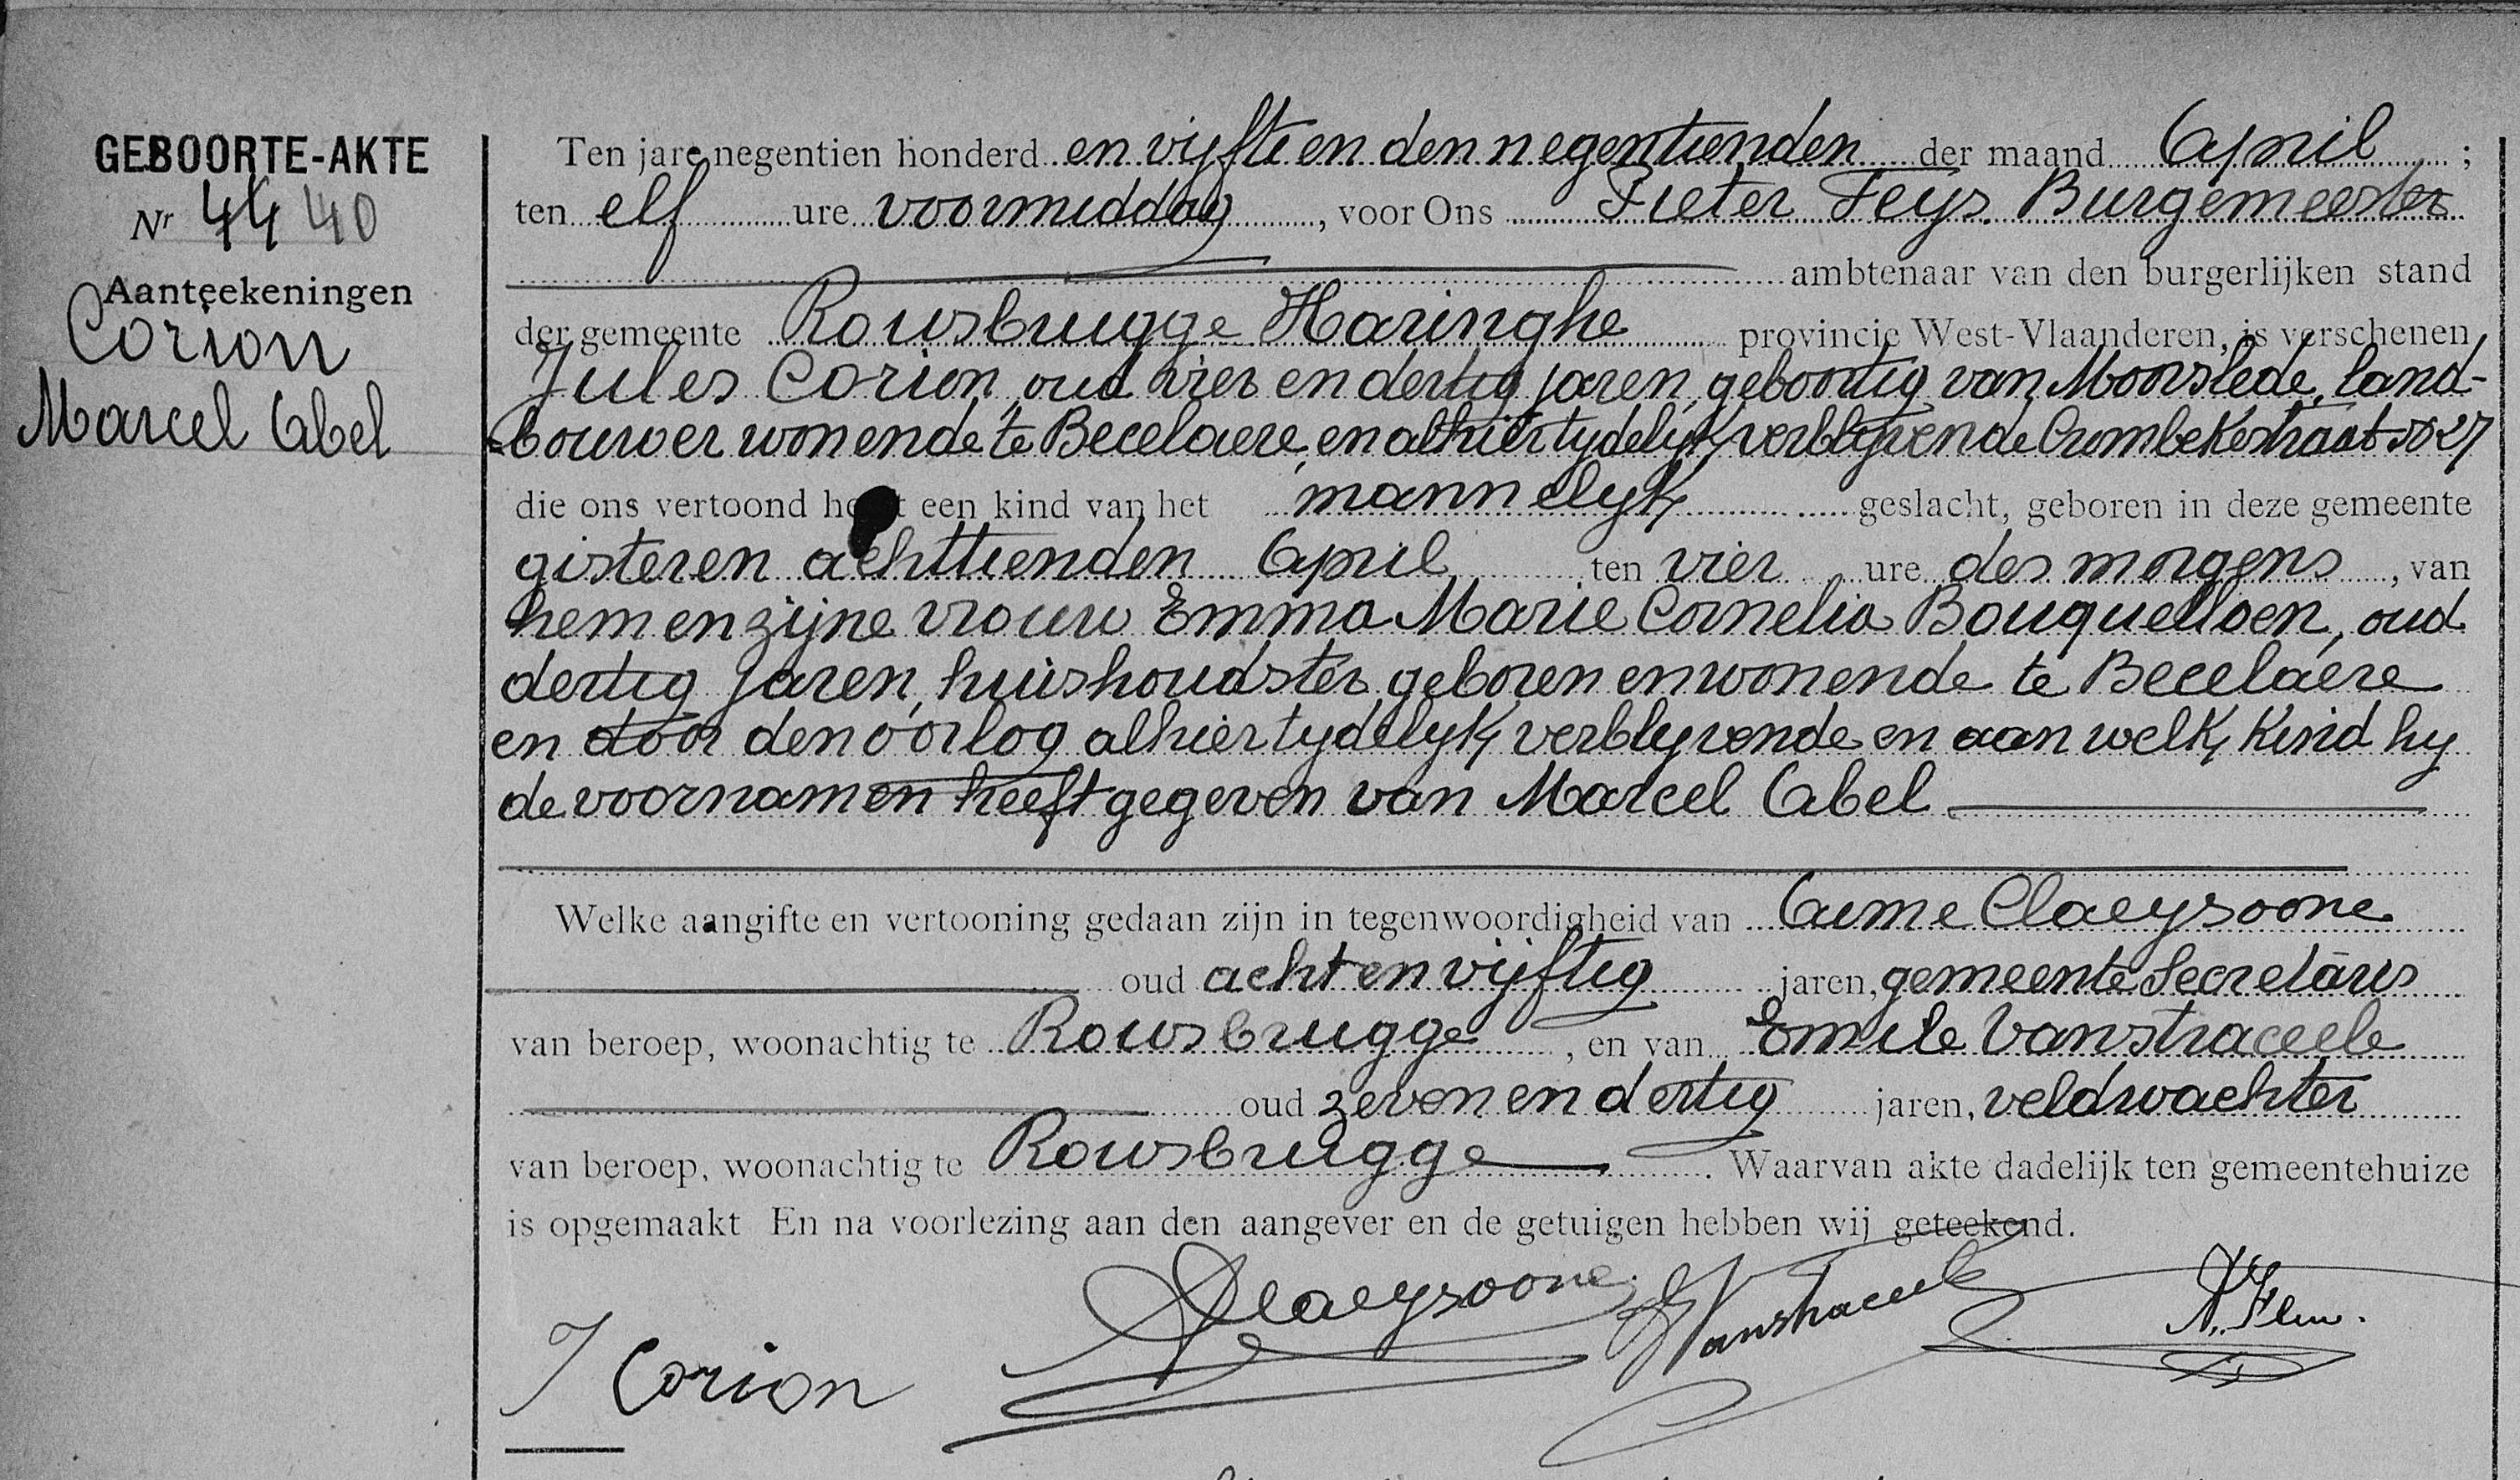 GEBOORTE-AKTE
Nr 44 40
Aanteekeningen
Corion
Marcel Abel
Ten jare negentien honderd en vijftien den negentienden der maand April ;
ten elf ure voormiddag, voor Ons Pieter Feys Burgemeester
ambtenaar van den burgerlijken stand
der gemeente Rousbrugge Haringhe provincie West-Vlaanderen, is verschenen
Jules Corion, oud vier en dertig jaren, geboortig van Moorslede, land-
bouwer wonende te Becelaere, en alhier tydelyk verblyvende Crombekestraat No 27
die ons vertoond heeft een kind van het mannelyk geslacht, geboren in deze gemeente
gisteren achttienden April ten vier ure des morgens, van
hem en zijne vrouw Emma Marie Cornelia Bouquelloen, oud
dertig jaren, huishoudster, geboren en wonende te Becelaere
en door den oorlog alhier tydelyk verblyvende en aan welk kind hy
de voornamen heeft gegeven van Marcel Abel
Welke aangifte en vertooning gedaan zijn in tegenwoordigheid van Aime Claeysoone
oud acht en vijftig jaren, gemeente Secretaris
van beroep, woonachtig te Rousbrugge, en van Emile Vanstraceele
oud zeven en dertig jaren, veldwachter
van beroep, woonachtig te Rousbrugge. Waarvan akte dadelijk ten gemeentehuize
is opgemaakt En na voorlezing aan den aangever en de getuigen hebben wij geteekend.
J Corion
A Claeysoone
E Vanstraceele